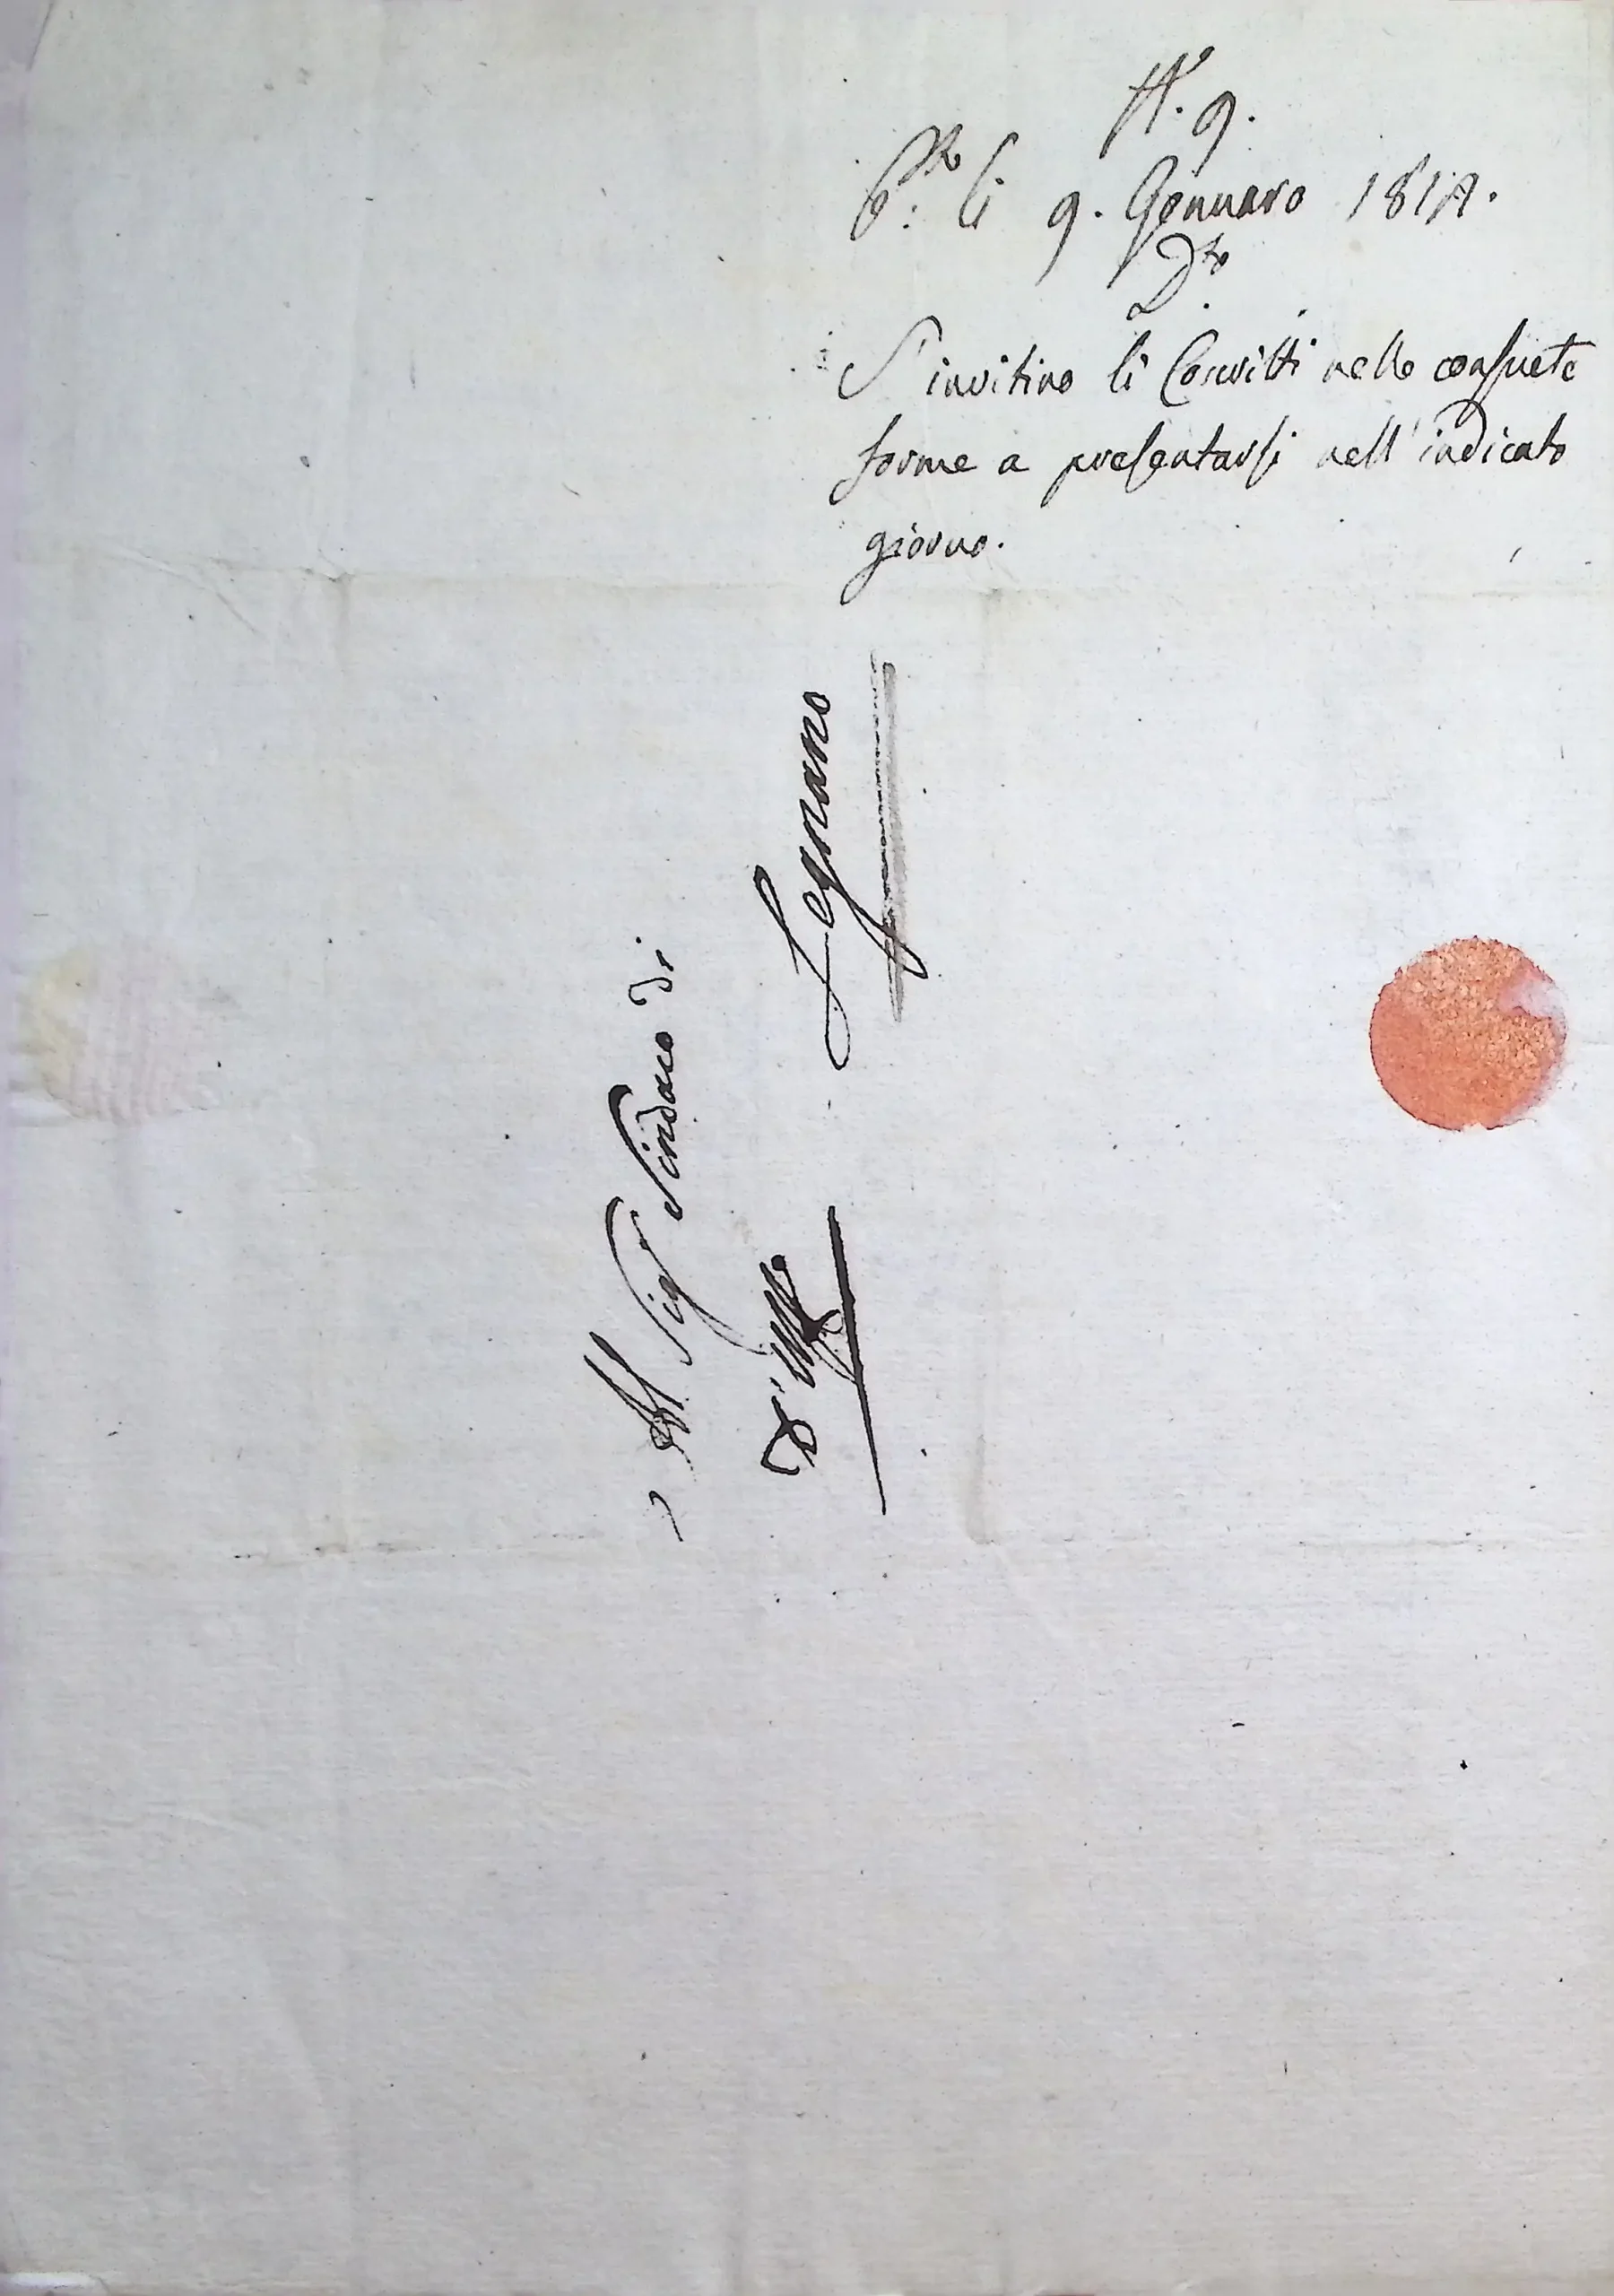 N.° 9.
P.to li 9. Gennaro 1814.
D.to
S'invitino li Coscritti nelle consuete
forme a presentarsi nell'indicato
giorno.
Al Sig.r Sindaco di
D'Uff.o Legnano